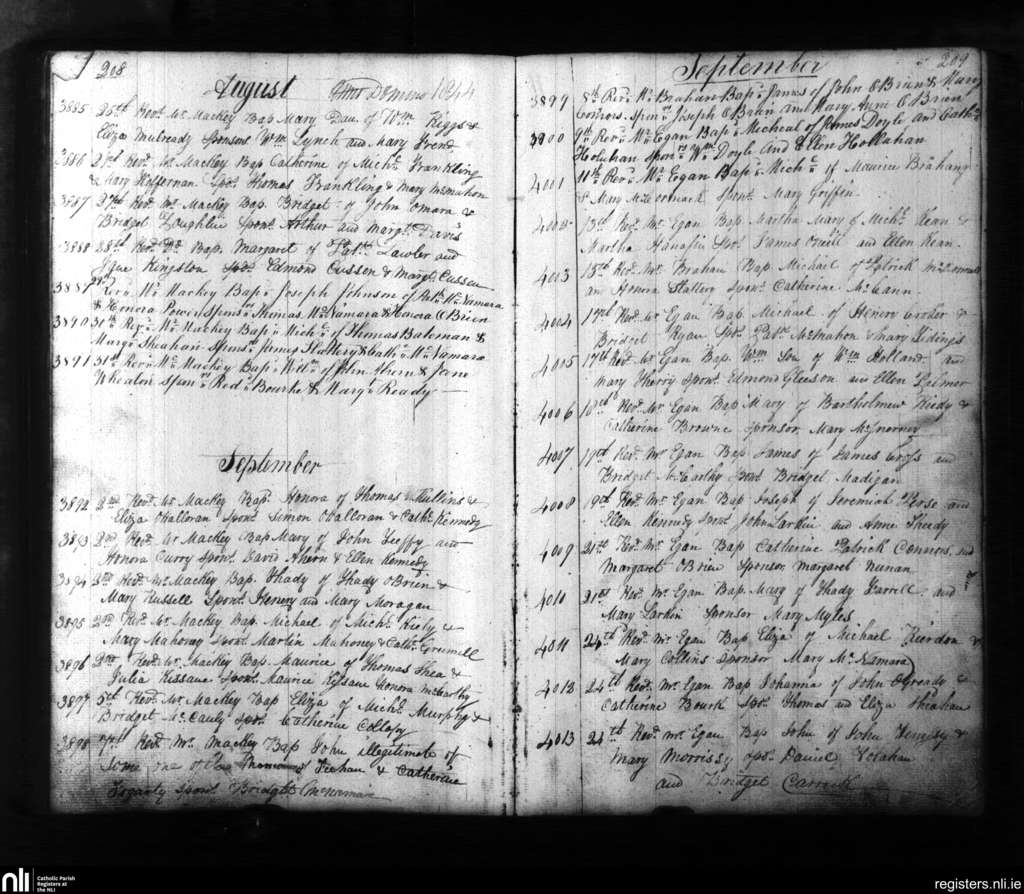 208
August Anno Domini 1844
3885 26th Revd. Mr Mackey Bap Mary Dau. of Wm Riggs &
Eliza Mulready Sponsors Wm Lynch and Mary Frend
3886 27th Revd. Mr Mackey Bap Catherine of Michl. Frankling
& Mary Heffernan Spos. Thomas Frankling & Mary McMahon
3887 27th Revd. Mr Mackey Bap. Bridget of John Omara &
Bridget Loughlin Spons. Arthur and Margt. Davis
3888 28th Revd. Do Bap. Margaret of Patk. Lawler and
Jane Kingston Spos. Edmond Cussen & Margt. Cussen
3889 Revd. Mr Mackey Bapd. Joseph Johnson of Patk. McNamara
& Honora Power Sponrs Thomas McNamara & Honora O Brien
3890 31st Revd. Mr Mackey Bapd. Michl. of Thomas Bateman &
Margt. Sheahan Sponrs James Slattery & Cathe. McNamara
3891 31st Revd. Mr Mackey Bapd. Willm. of John Ahern & Jane
Wheaton Sponrs Redd. Bourke & Margt. Ready
September
3892 2nd Revd. Mr Mackey Bap. Honora of Thomas Mullins &
Eliza OHalloran Spons. Simon OHalloran & Cathe. Kennedy
3893 2nd Revd. Mr Mackey Bap Mary of John Leffy and
Honora Curry Spons. David Ahern & Ellen Kennedy
3894 Revd. Mr Mackey Bap. Thady of Thady OBrien &
Mary Russell Spons. Henery and Mary Moragan
3895 Revd. Mr. Mackey Bap. Michael of Michl. Kiely &
Mary Mahoney Spons. Martin Mahoney & Cathe. Grummell
3896 Revd. Mr Mackey Bap. Maurice of Thomas Shea &
Julia Kissane Spons. Maurice Kissane Honora McCarthy
3897 5th Revd. Mr Mackey Bap Eliza of Michl. Murphy &
Bridget McCauly Spos. Catherine Collopy
3898 7th Revd. Mr. Mackey Bap John illegitimate of
Some one of the Feehan & Catherine
Fogarty Spons. Bridget McNamara
209
September
3899 8th Revd. Mr Braham Bapd. James of John O Brien & Mary
Connors Sponrs Joseph O Brien and Mary Anne O Brien
3900 9th Revd. Mr Egan Bapd. Micheal of James Doyle and Cathe.
Holuhan Sponrs Wm. Doyle And Ellen Hollahan
4001 11th Revd. Mr Egan Bapd. Michl. of Maurice Brahany
& Mary McLeonard Spons. Mary Griffen
4002 13th Revd. Mr. Egan Bap. Martha Mary of Michl. Kean &
Martha Hanafin Spos. James Oneill and Ellen Kean
4003 15th Revd. Mr. Braham Bap. Michael of Patrick
and Honora Slattery Spons. Catherine McCann
4004 17th Revd. Mr Egan Bap. Michael of Henery &
Bridget Ryan Spos. Patr. McMahon & Mary Hidings
4005 17th Revd. Mr Egan Bap. Wm Son of Wm Holland and
Mary Sherry Spons. Edmond Gleeson and Ellen Palmer
4006 18th Revd. Mr Egan Bap Mary of Bartholmew Hiedy &
Catherine Browne Sponsor Mary McInerney
4007 19th Revd. Mr Egan Bap James of James Cross and
Bridget McCarthy Spons. Bridget Madigan
4008 19th Revd. Mr. Egan Bap Joseph of Jeremiah Perse and
Ellen Kennedy Spons. John Larkin and Anne Sheedy
4009 21st Revd. Mr. Egan Bap Catherine Patrick Connors and
Margaret OBrien Sponsor Margaret Nunan
4010 21st Revd. Mr. Egan Bap. Mary of Thady Farrell and
Mary Larkin Sponsor Mary Myles
4011 24th Revd. Mr Egan Bap Eliza of Michael Rierdon &
Mary Collins Sponsor Mary McNamara
4012 24th Revd. Mr. Egan Bap Johanna of John OGrady &
Catherine Bourk Spos. Thomas and Eliza Sheahan
4013 24th Revd. Mr. Egan Bap John of John &
Mary Morrissy Spo. Daniel Holahan
and Bridget Carrick
nli Catholic Parish Registers at the NLI
registers.nli.ie